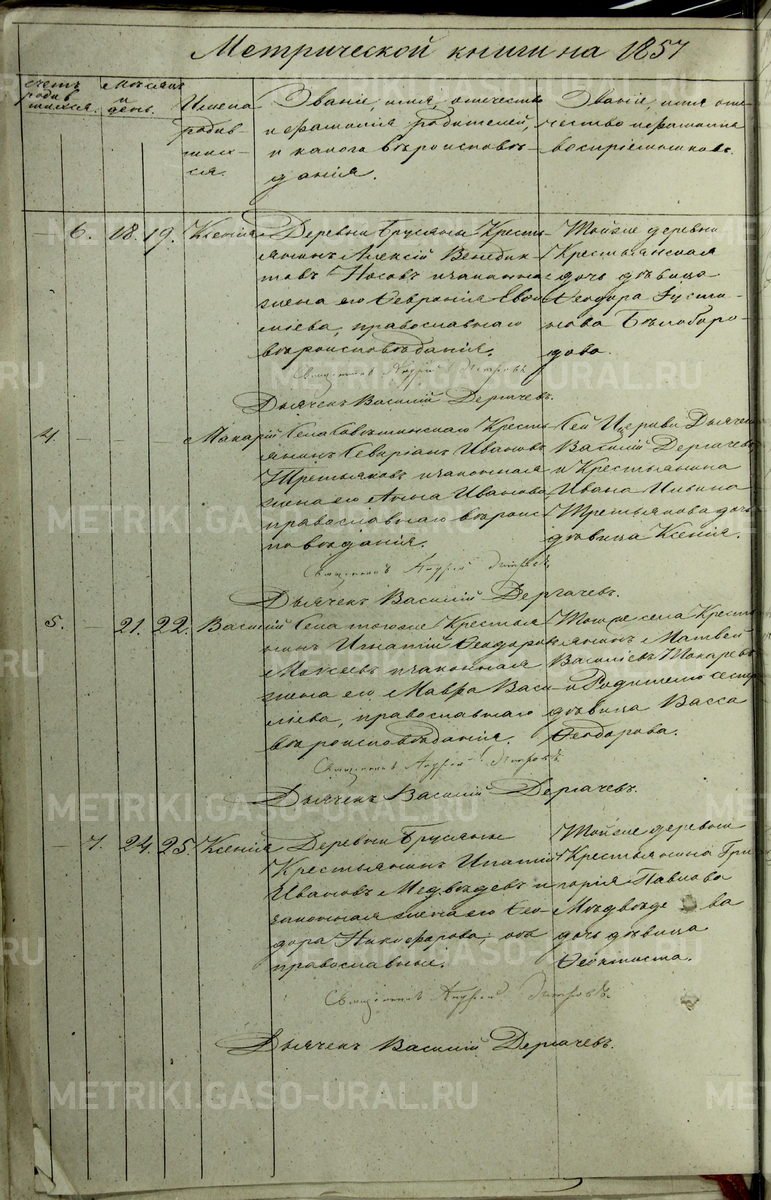 Метрической книги на 1857
счетъ родившихся.
Мѣсяцъ и день.
Имена родив-
ших-
ся.
Званіе, имя, отчество
и фамилія родителей,
и какого вѣроисповѣ-
данія.
Званіе, имя, оте-
чество и фамилія
воспріемниковъ.
6. 18. 19. Ксенія
Деревни Брусяны Кресть-
янинъ Алексій Венедик-
товъ Носовъ и законная
жена его Февронія
православнаго
вѣроисповѣданія.
Тойже деревни
Крестьянская
дочь дѣвица
Ѳеодора
Бѣлоборо-
дова.
Священникъ Андрей
Дьячекъ Василій Дергачевъ.
4. Макарій
Села Кресть-
янинъ Ивановъ
Третьяковъ и законная
жена его Анна Иванова
православнаго вѣроис-
повѣданія.
Сей Церкви Дьячекъ
Василій Дергачевъ
и Крестьянина
Ивана Ильина
Третьякова дочь
дѣвица Ксенія.
Священникъ Андрей
Дьячекъ Василій Дергачевъ.
5. 21. 22. Василій
Села тогоже Крестья-
нинъ Игнатій Ѳеодоровъ
Мокеевъ и законная
жена его Мавра Васи-
ліева, православнаго
вѣроисповѣданія.
Тогоже села Кресть-
янинъ Матвей
Василіевъ Токаревъ
и Родителю сестра
дѣвица Васса
Ѳеодорова.
Священникъ Андрей
Дьячекъ Василій Дергачевъ.
7. 24. 25. Ксенія
Деревни Брусяны
Крестьянинъ Ипатій
Ивановъ Медвѣдевъ и
законная жена его Ѳео-
дора Никифорова, оба
православные.
Тойже деревни
Крестьянина Гри-
горія Павлова
Медвѣдева
дочь дѣвица
Ѳеоктиста.
Священникъ Андрей
Дьячекъ Василій Дергачевъ.
METRIKI.GASO-URAL.RU